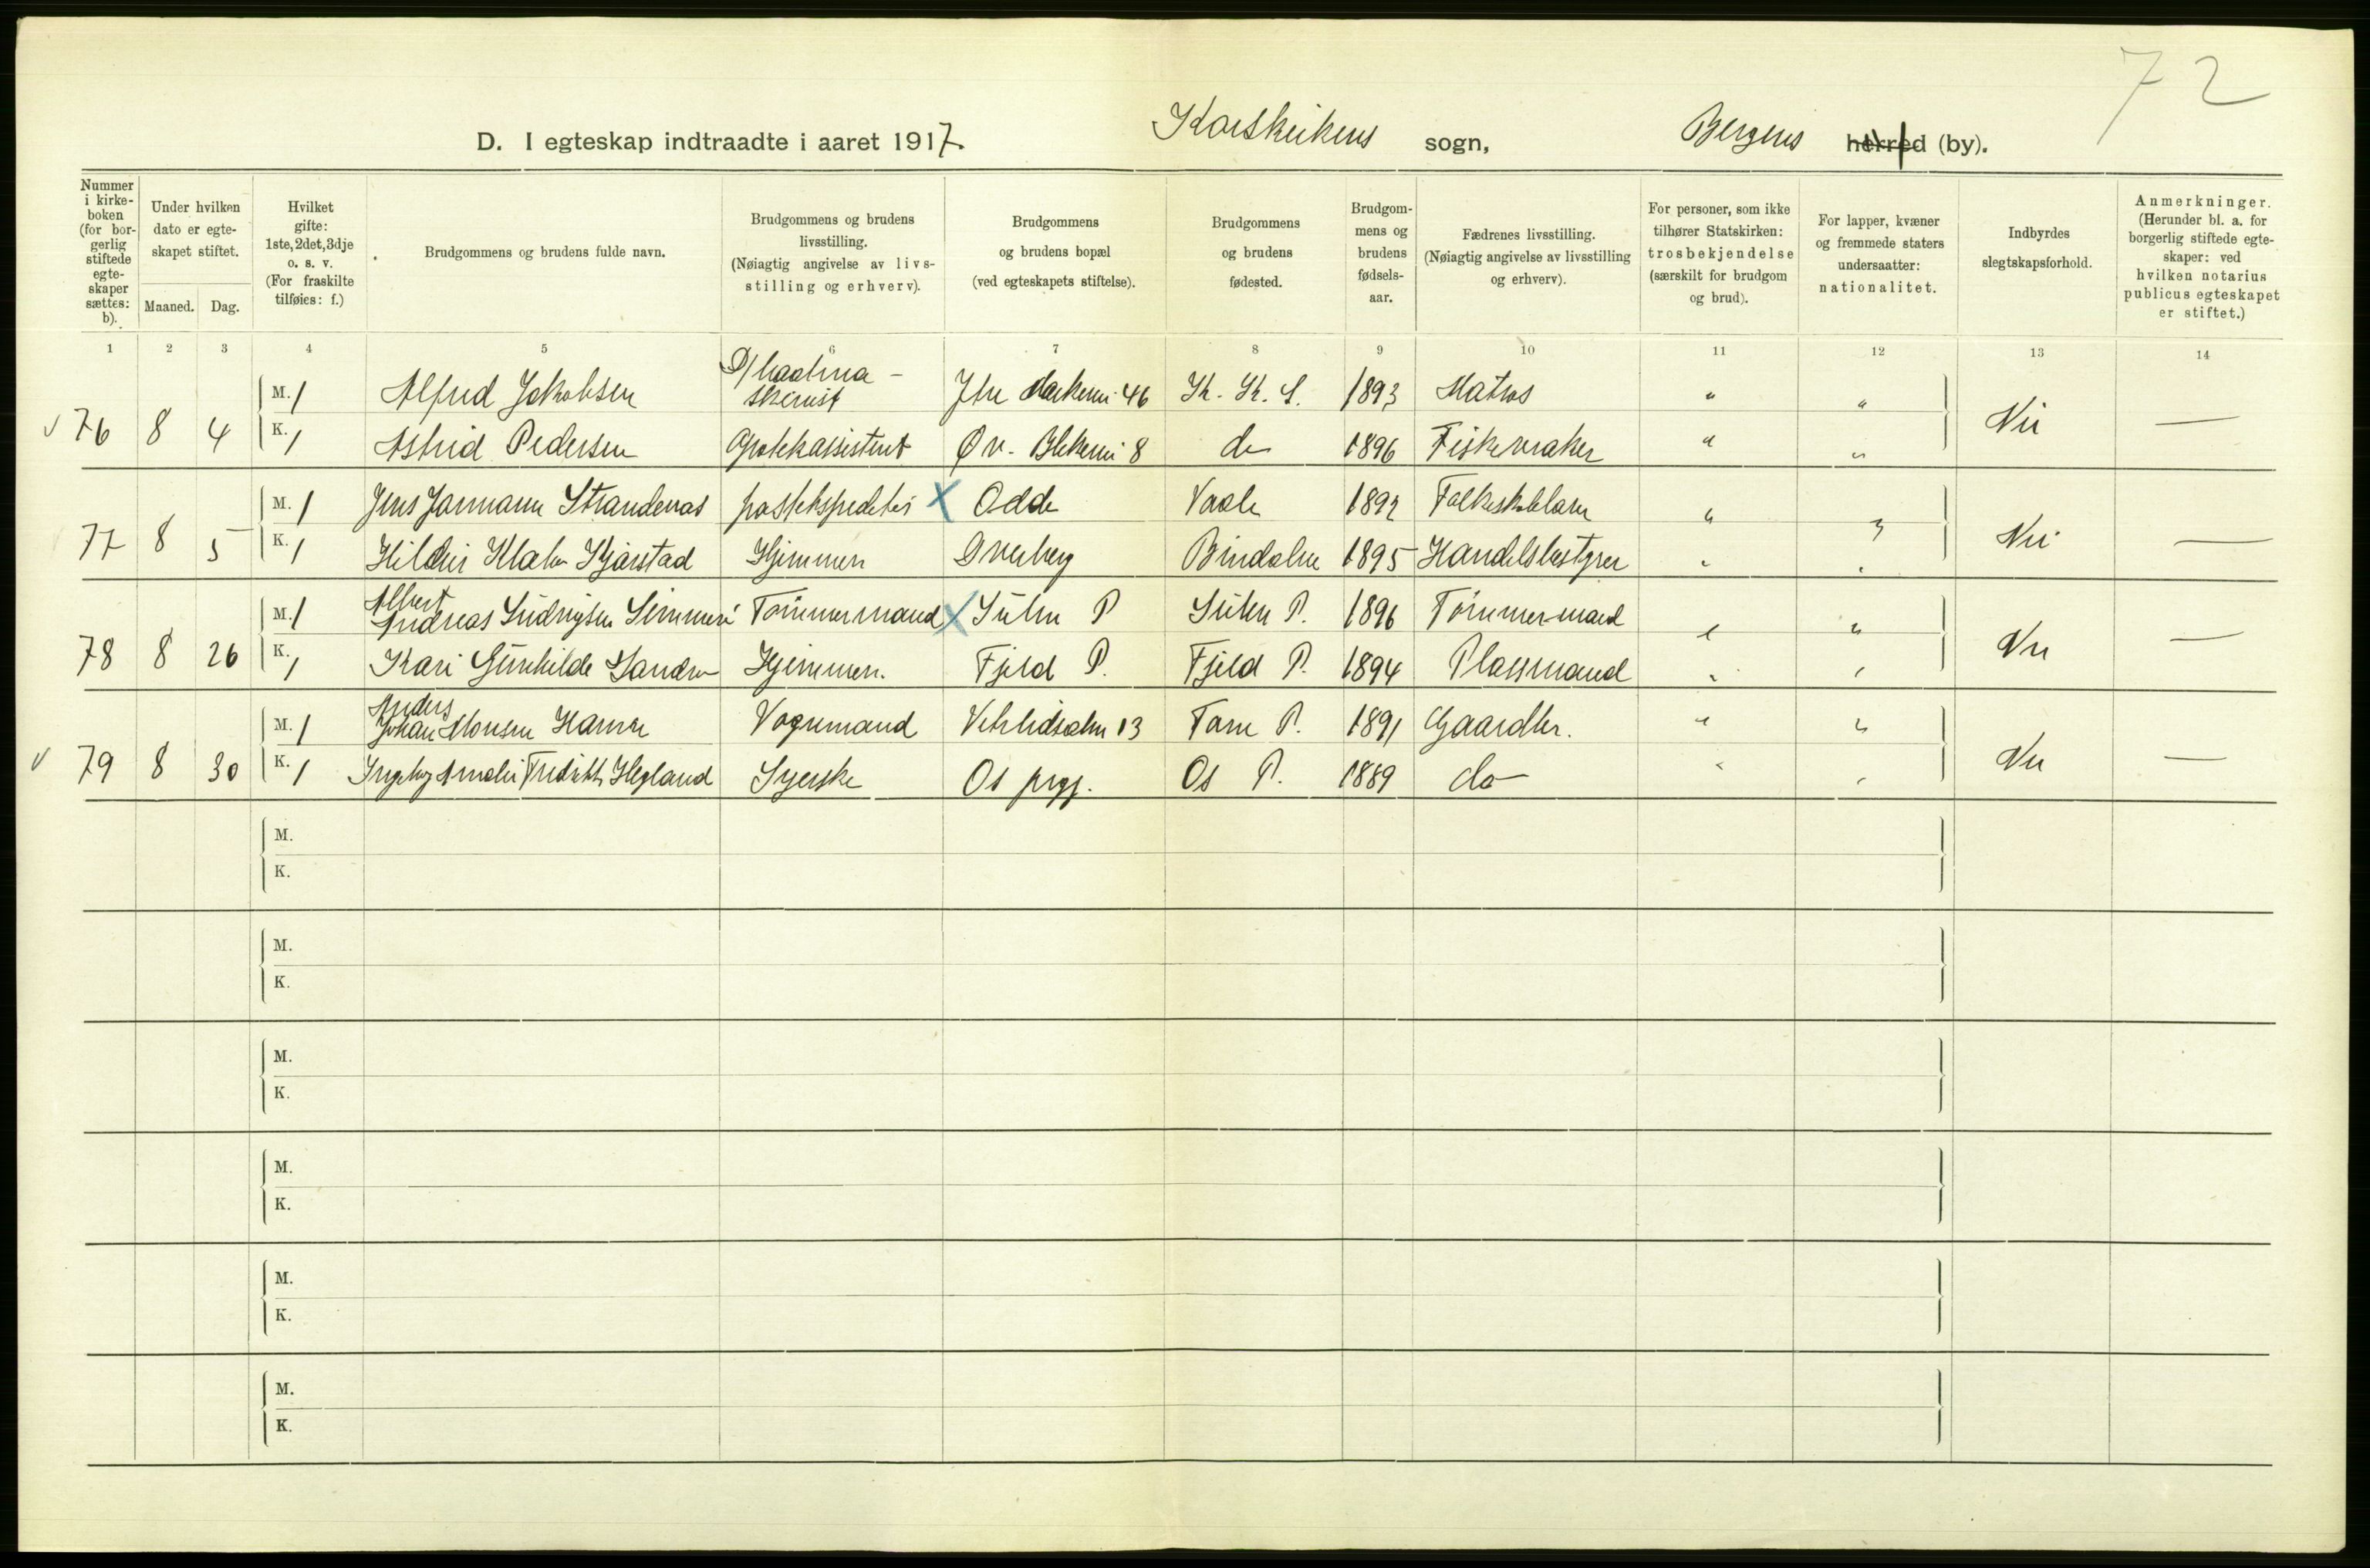 72
D. I egteskap indtraadte i aaret 1917. Korskirkens sogn, Bergens herred (by).
Nummer i kirkeboken (for borgerlig stiftede egteskaper sættes: b).
Under hvilken dato er egteskapet stiftet.
Maaned. Dag.
Hvilket gifte: 1ste, 2det, 3dje o. s. v. (For fraskilte tilføies: f.)
Brudgommens og brudens fulde navn.
Brudgommens og brudens livsstilling. (Nøiagtig angivelse av livsstilling og erhverv).
Brudgommens og brudens bopæl (ved egteskapets stiftelse).
Brudgommens og brudens fødested.
Brudgommens og brudens fødselsaar.
Fædrenes livsstilling. (Nøiagtig angivelse av livsstilling og erhverv).
For personer, som ikke tilhører Statskirken: trosbekjendelse (særskilt for brudgom og brud).
For lapper, kvæner og fremmede staters undersaatter: nationalitet.
Indbyrdes slegtskapsforhold.
Anmerkninger. (Herunder bl. a. for borgerlig stiftede egteskaper: ved hvilken notarius publicus egteskapet er stiftet.)
1 2 3 4 5 6 7 8 9 10 11 12 13 14
76 8 4 M. 1 Alfred Jakobsen 46 K. K. S. 1893 Matros " " Nei —
K. 1 Astrid Pedersen Apotekassistent Øv. Blekevei 8 do 1896 Fiskevraker " "
77 8 5 M. 1 Jens Jarmann Strandenas postekspeditør X Odda 1892 " " Nei —
K. 1 Kjærstad Hjemmen Bindalen 1895 Handelsbestyrer " "
78 8 26 M. 1 Albert Andreas Tømmermand X P 1896 Tømmermand " " Nei —
K. 1 Kari Gunhilde Hjemmen. Fjeld P. Fjeld P. 1894 Plassmand " "
79 8 30 M. 1 Anders Johan Monsen Hamre Vognmand 13 P. 1891 Gaardbr. " " Nei —
K. 1 Hegland Syerske Os prgj. Os P. 1889 do " "
M.
K.
M.
K.
M.
K.
M.
K.
M.
K.
M.
K.